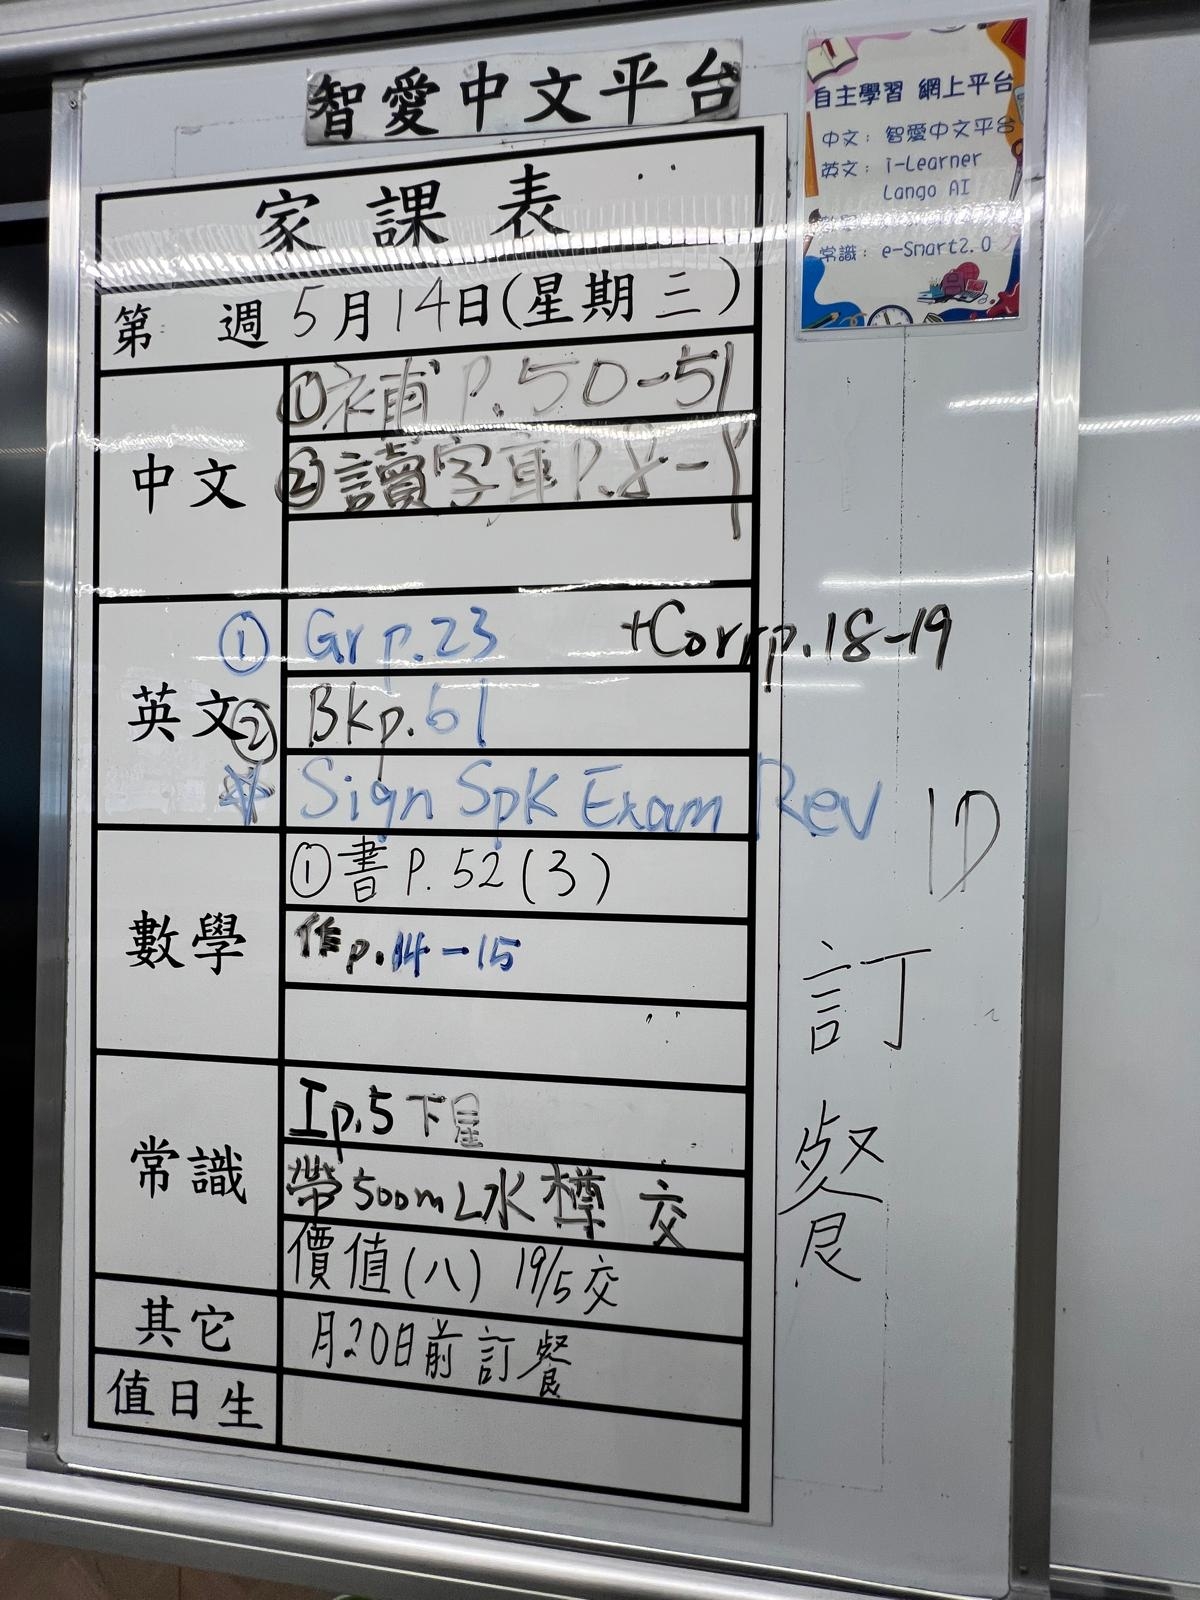 智愛中文平台
家課表
第 週 5月14日(星期三)
中文
①補 P.50-51
②讀字庫 P.8-9
英文
① Gr p.23 +Corr p.18-19
② Bk p.61
☆ Sign Spk Exam Rev
數學
①書 P.52(3)
作 p.14-15
常識
I p.5 下星
帶500mL水樽 交
價值(八) 19/5交
其它
月20日前訂餐
值日生
1D
訂餐
自主學習 網上平台
中文：智愛中文平台
英文：i-Learner
Lango AI
常識：e-Smart2.0